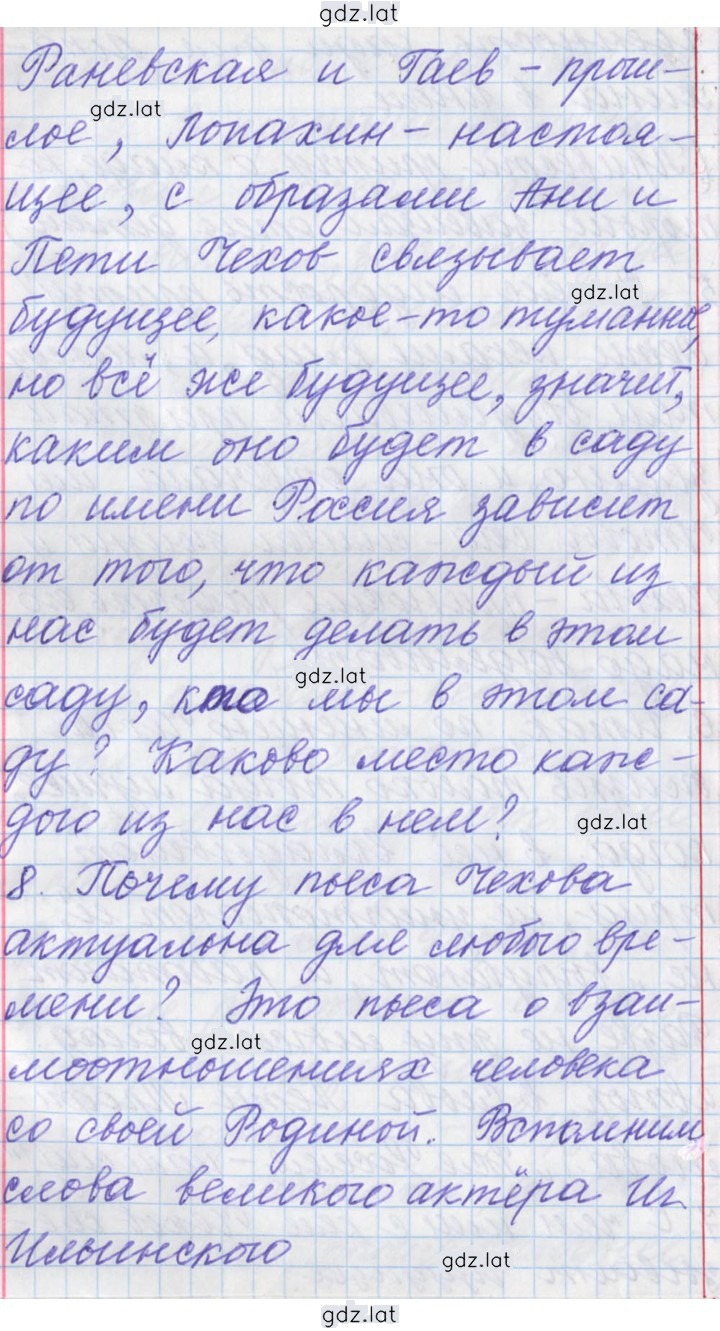 gdz.lat
Раневская и Гаев – прош-
gdz.lat
лое, Лопахин – настоя-
щее, с образами Ани и
Пети Чехов связывает
gdz.lat
будущее, какое-то туманное,
но всё же будущее, значит,
каким оно будет в саду
по имени Россия зависит
от того, что каждый из
нас будет делать в этом
gdz.lat
саду, кто мы в этом са-
ду? Каково место каж-
дого из нас в нем?
gdz.lat
8. Почему пьеса Чехова
актуальна для любого вре-
мени? Это пьеса о взаи-
gdz.lat
моотношениях человека
со своей Родиной. Вспомним
слова великого актёра Иг.
Ильинского
gdz.lat
gdz.lat